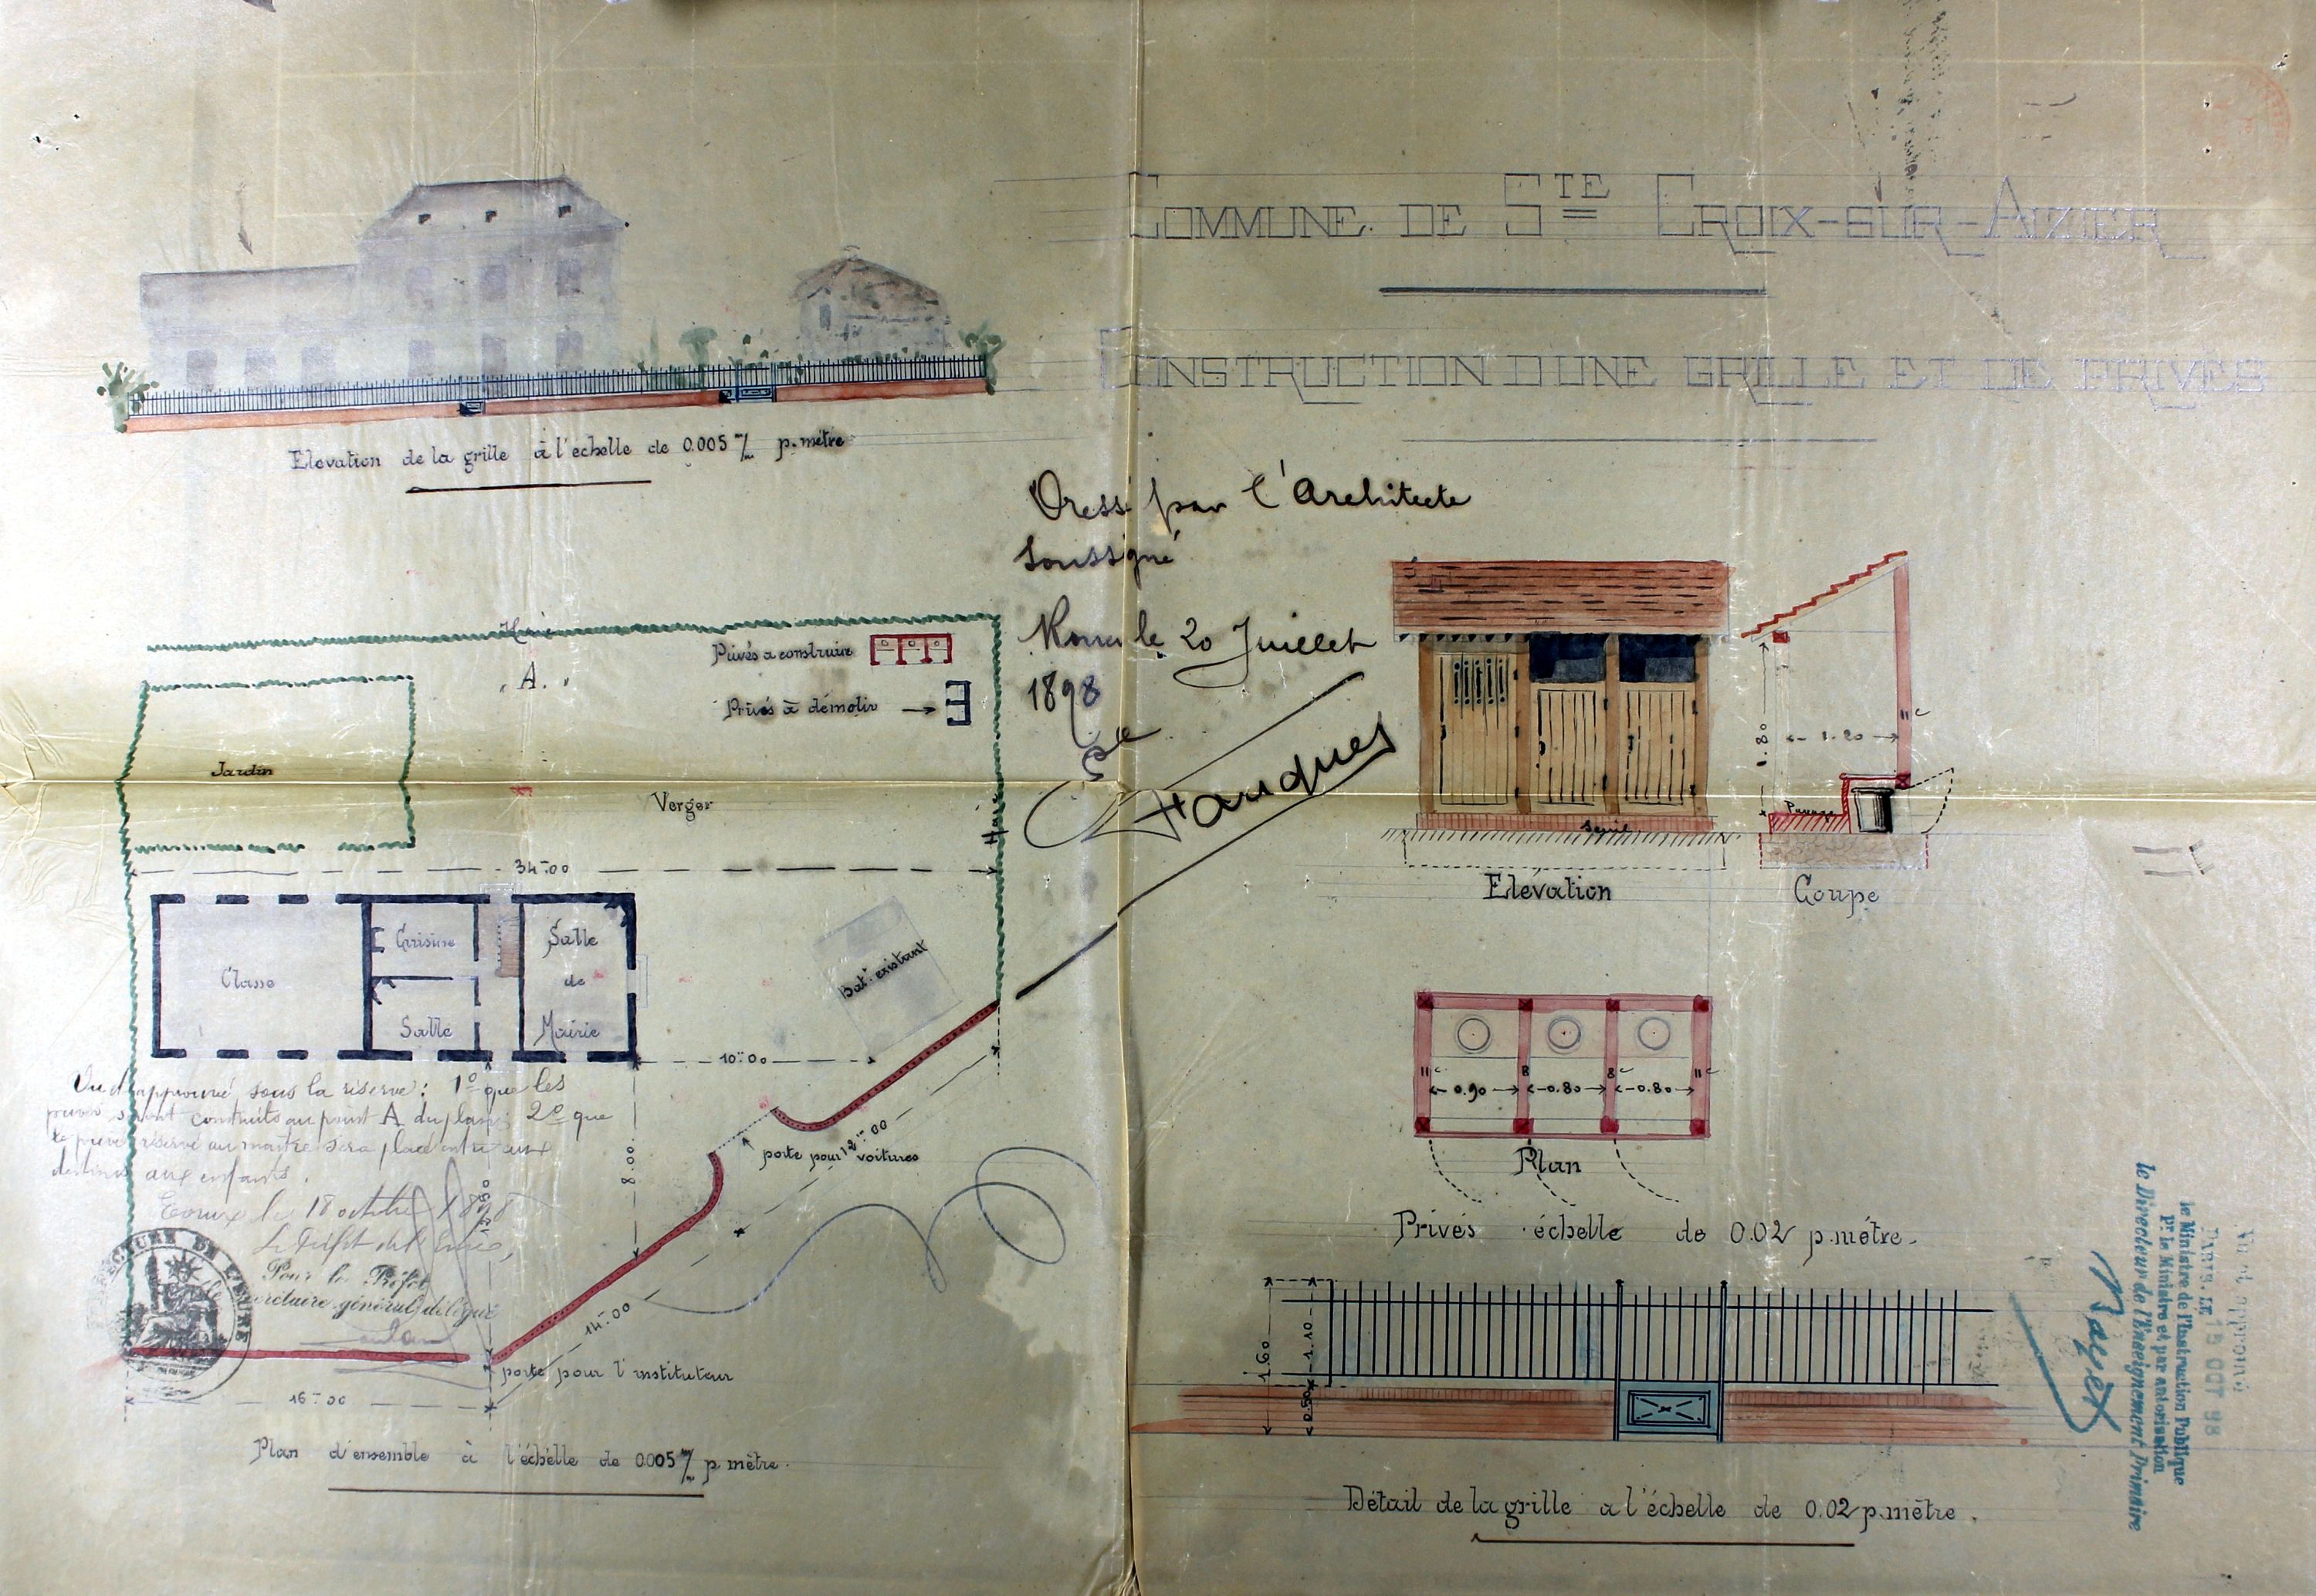 COMMUNE DE STE CROIX-SUR-AIZIER
CONSTRUCTION D'UNE GRILLE ET DE PRIVÉS
Elevation de la grille à l'echelle de 0.005 m/m p. mètre
Dressé par l'Architecte
soussigné
Rouen le 20 Juillet
1898
Haie
"A."
Privés a construire
Privés à démolir
Jardin
Verger
Haie
34m00
Classe
Cuisine
Salle
Salle
de
Mairie
Batt existant
10m00
8.00
12m00
porte pour voitures
14m00
porte pour l'instituteur
16m00
Vu et approuvé sous la réserve: 1º que les
privés soient construits au point A du plan; 2º que
le privé réservé au maître sera placé entre ceux
destinés aux enfants.
Evreux le 18 octobre 1898
Le Préfet de l'Eure,
Pour le Préfet
Le Secrétaire général délégué
PRÉFECTURE DE L'EURE
Plan d'ensemble à l'échelle de 0.005 m/m p mètre.
Seuil
Elévation
1.80
1.20
11c
Coupe
11c
8
8c
11c
0.90
0.80
0.80
Plan
Privés échelle de 0.02 p. mètre.
1.60
1.10
0.50
Détail de la grille a l'échelle de 0.02 p. mètre.
PARIS, LE 15 OCT 98
le Ministre de l'Instruction Publique
Pr le Ministre et par autorisation
le Directeur de l'Enseignement Primaire